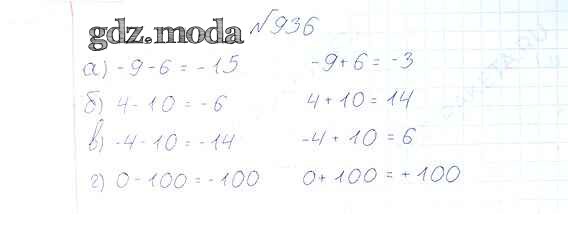 gdz.moda №936
а) -9-6 = -15 -9+6 = -3
б) 4-10 = -6 4+10 = 14
в) -4-10 = -14 -4+10 = 6
г) 0-100 = -100 0+100 = +100